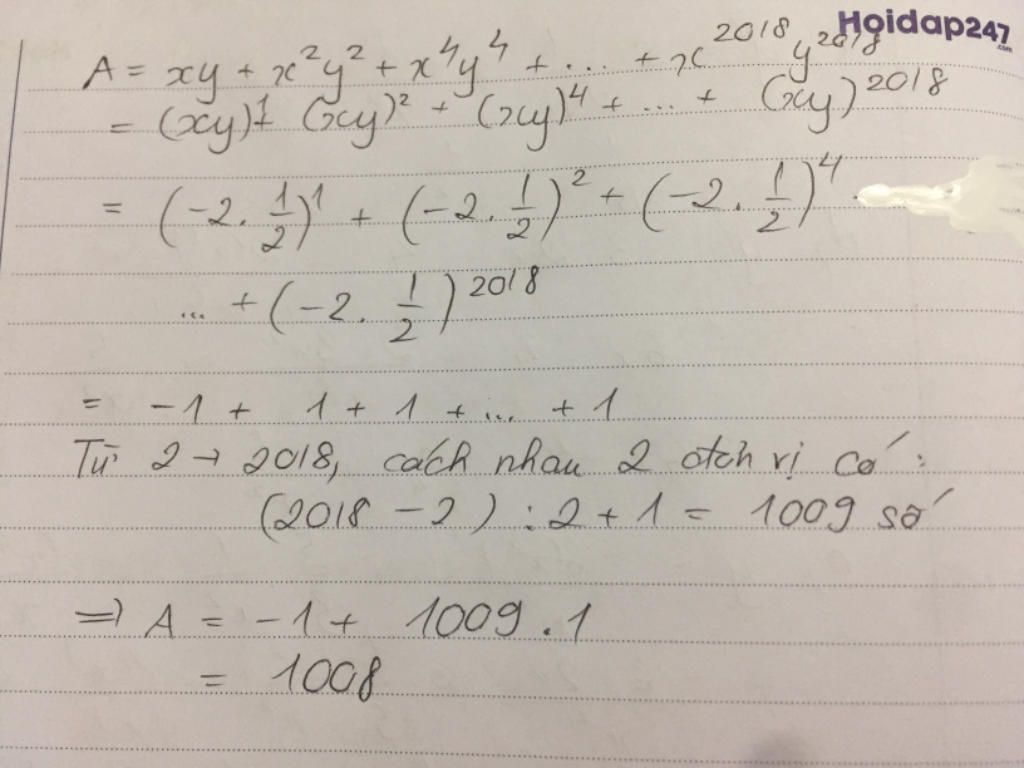 Hoidap247
.com
A = xy + x²y² + x⁴y⁴ + ... + x²⁰¹⁸ y²⁰¹⁸
= (xy)¹ + (xy)² + (xy)⁴ + ... + (xy)²⁰¹⁸
= (-2. 1/2)¹ + (-2. 1/2)² + (-2. 1/2)⁴ .
... + (-2. 1/2)²⁰¹⁸
= -1 + 1 + 1 + ... + 1
Từ 2 → 2018, cách nhau 2 đơn vị có :
(2018 - 2) : 2 + 1 = 1009 số
=> A = -1 + 1009 . 1
= 1008